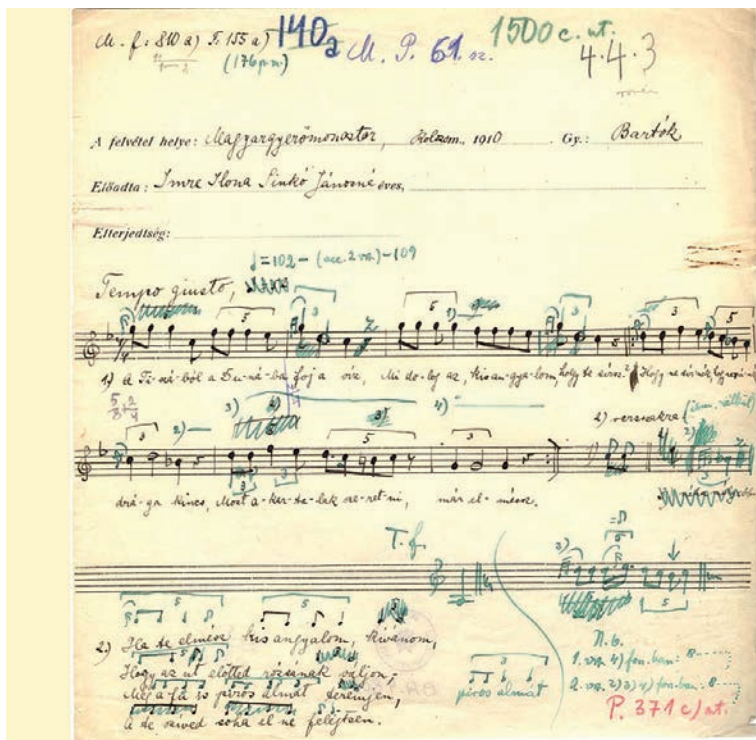 M. f: 810 a) F. 155 a) 140 a M. P. 61. sz. 1500 c. ut.
(176 p.m.) 4. 4. 3
A felvétel helye: Magyargyerőmonostor, Kolozsm. 1910 Gy.: Bartók
Előadta: Imre Ilona Sinkó Jánosné éves,
Elterjedtség:
♩=102 – (acc. 2 vsz.) – 109
Tempo giusto,
1) A Ti-szá-ból a Du-ná-ba foj a víz, Mi do-log az, kis an-gya-lom, hogy te sírsz? Hogy ne sírnék,
drá-ga kincs, Most a-kar-ta-lak sze-ret-ni, már el-mész.
2) versszakra
T. f.
2.) Ha te elmész kis angyalom, kívánom,
Hogy az út előtted rózsának váljon,
Még a fa is piros almát teremjen,
A te szived soha el ne felejtsen.
piros almát
N.b.
1. vsz. 4) fon.ban: 8
2. vsz. 2) 3) 4) fon.ban: 8
P. 371 c) ut.